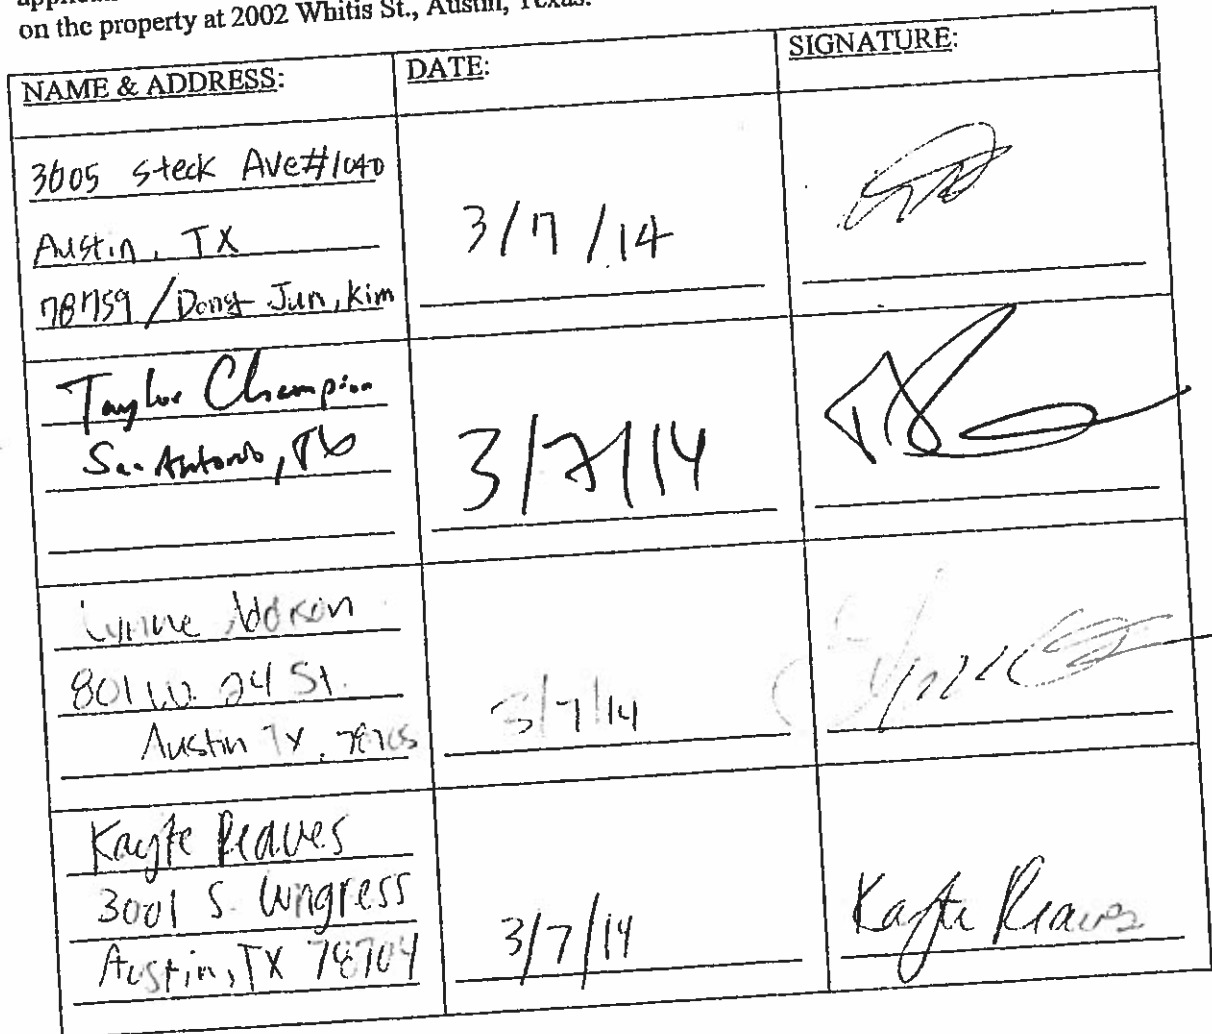 on the property at 2002 Whitis St., Austin, Texas.
NAME & ADDRESS:
DATE:
SIGNATURE:
3605 Steck Ave#1040
Austin, TX
78759 / Dong Jun, Kim
3/7/14
Taylor Champion
San Antonio, TX
3/7/14
801 W. 24 St.
Austin TX, 78705
3/7/14
Kayte Reaves
3001 S. Congress
Austin, TX 78704
3/7/14
Kayte Reaves